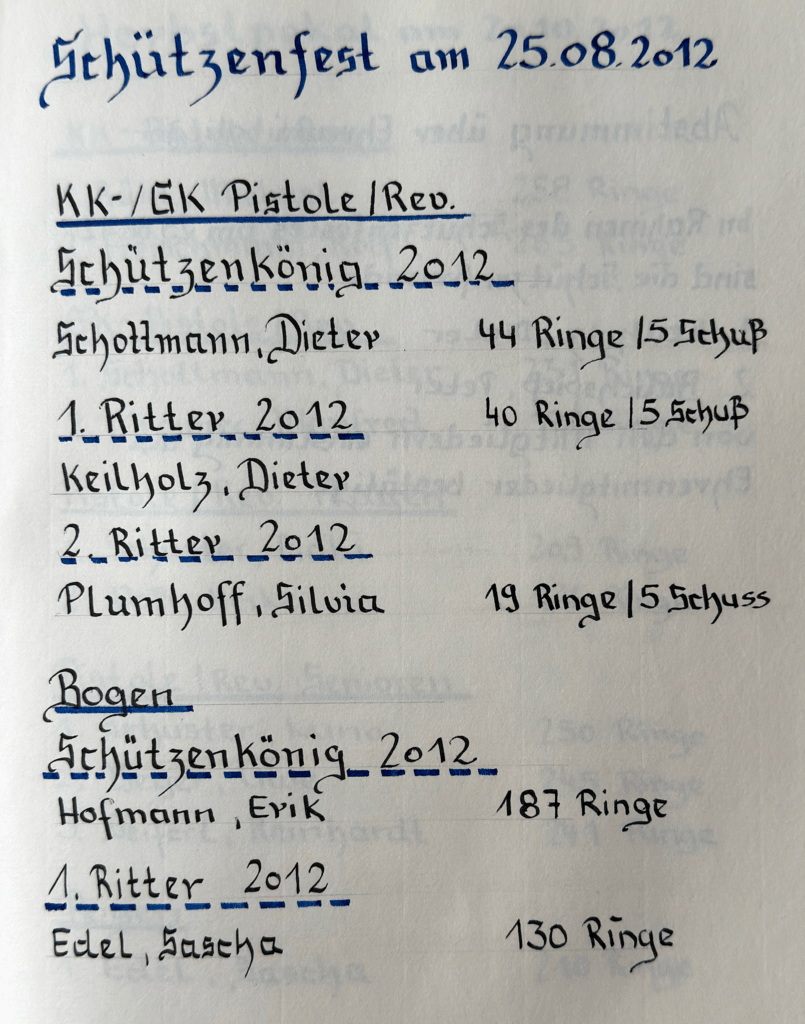 Schützenfest am 25.08.2012
KK-/GK Pistole/Rev.
Schützenkönig 2012
Schottmann, Dieter 44 Ringe/5 Schuß
1. Ritter 2012 40 Ringe/5 Schuß
Keilholz, Dieter
2. Ritter 2012
Plumhoff, Silvia 19 Ringe/5 Schuss
Bogen
Schützenkönig 2012
Hofmann, Erik 187 Ringe
1. Ritter 2012
Edel, Sascha 130 Ringe